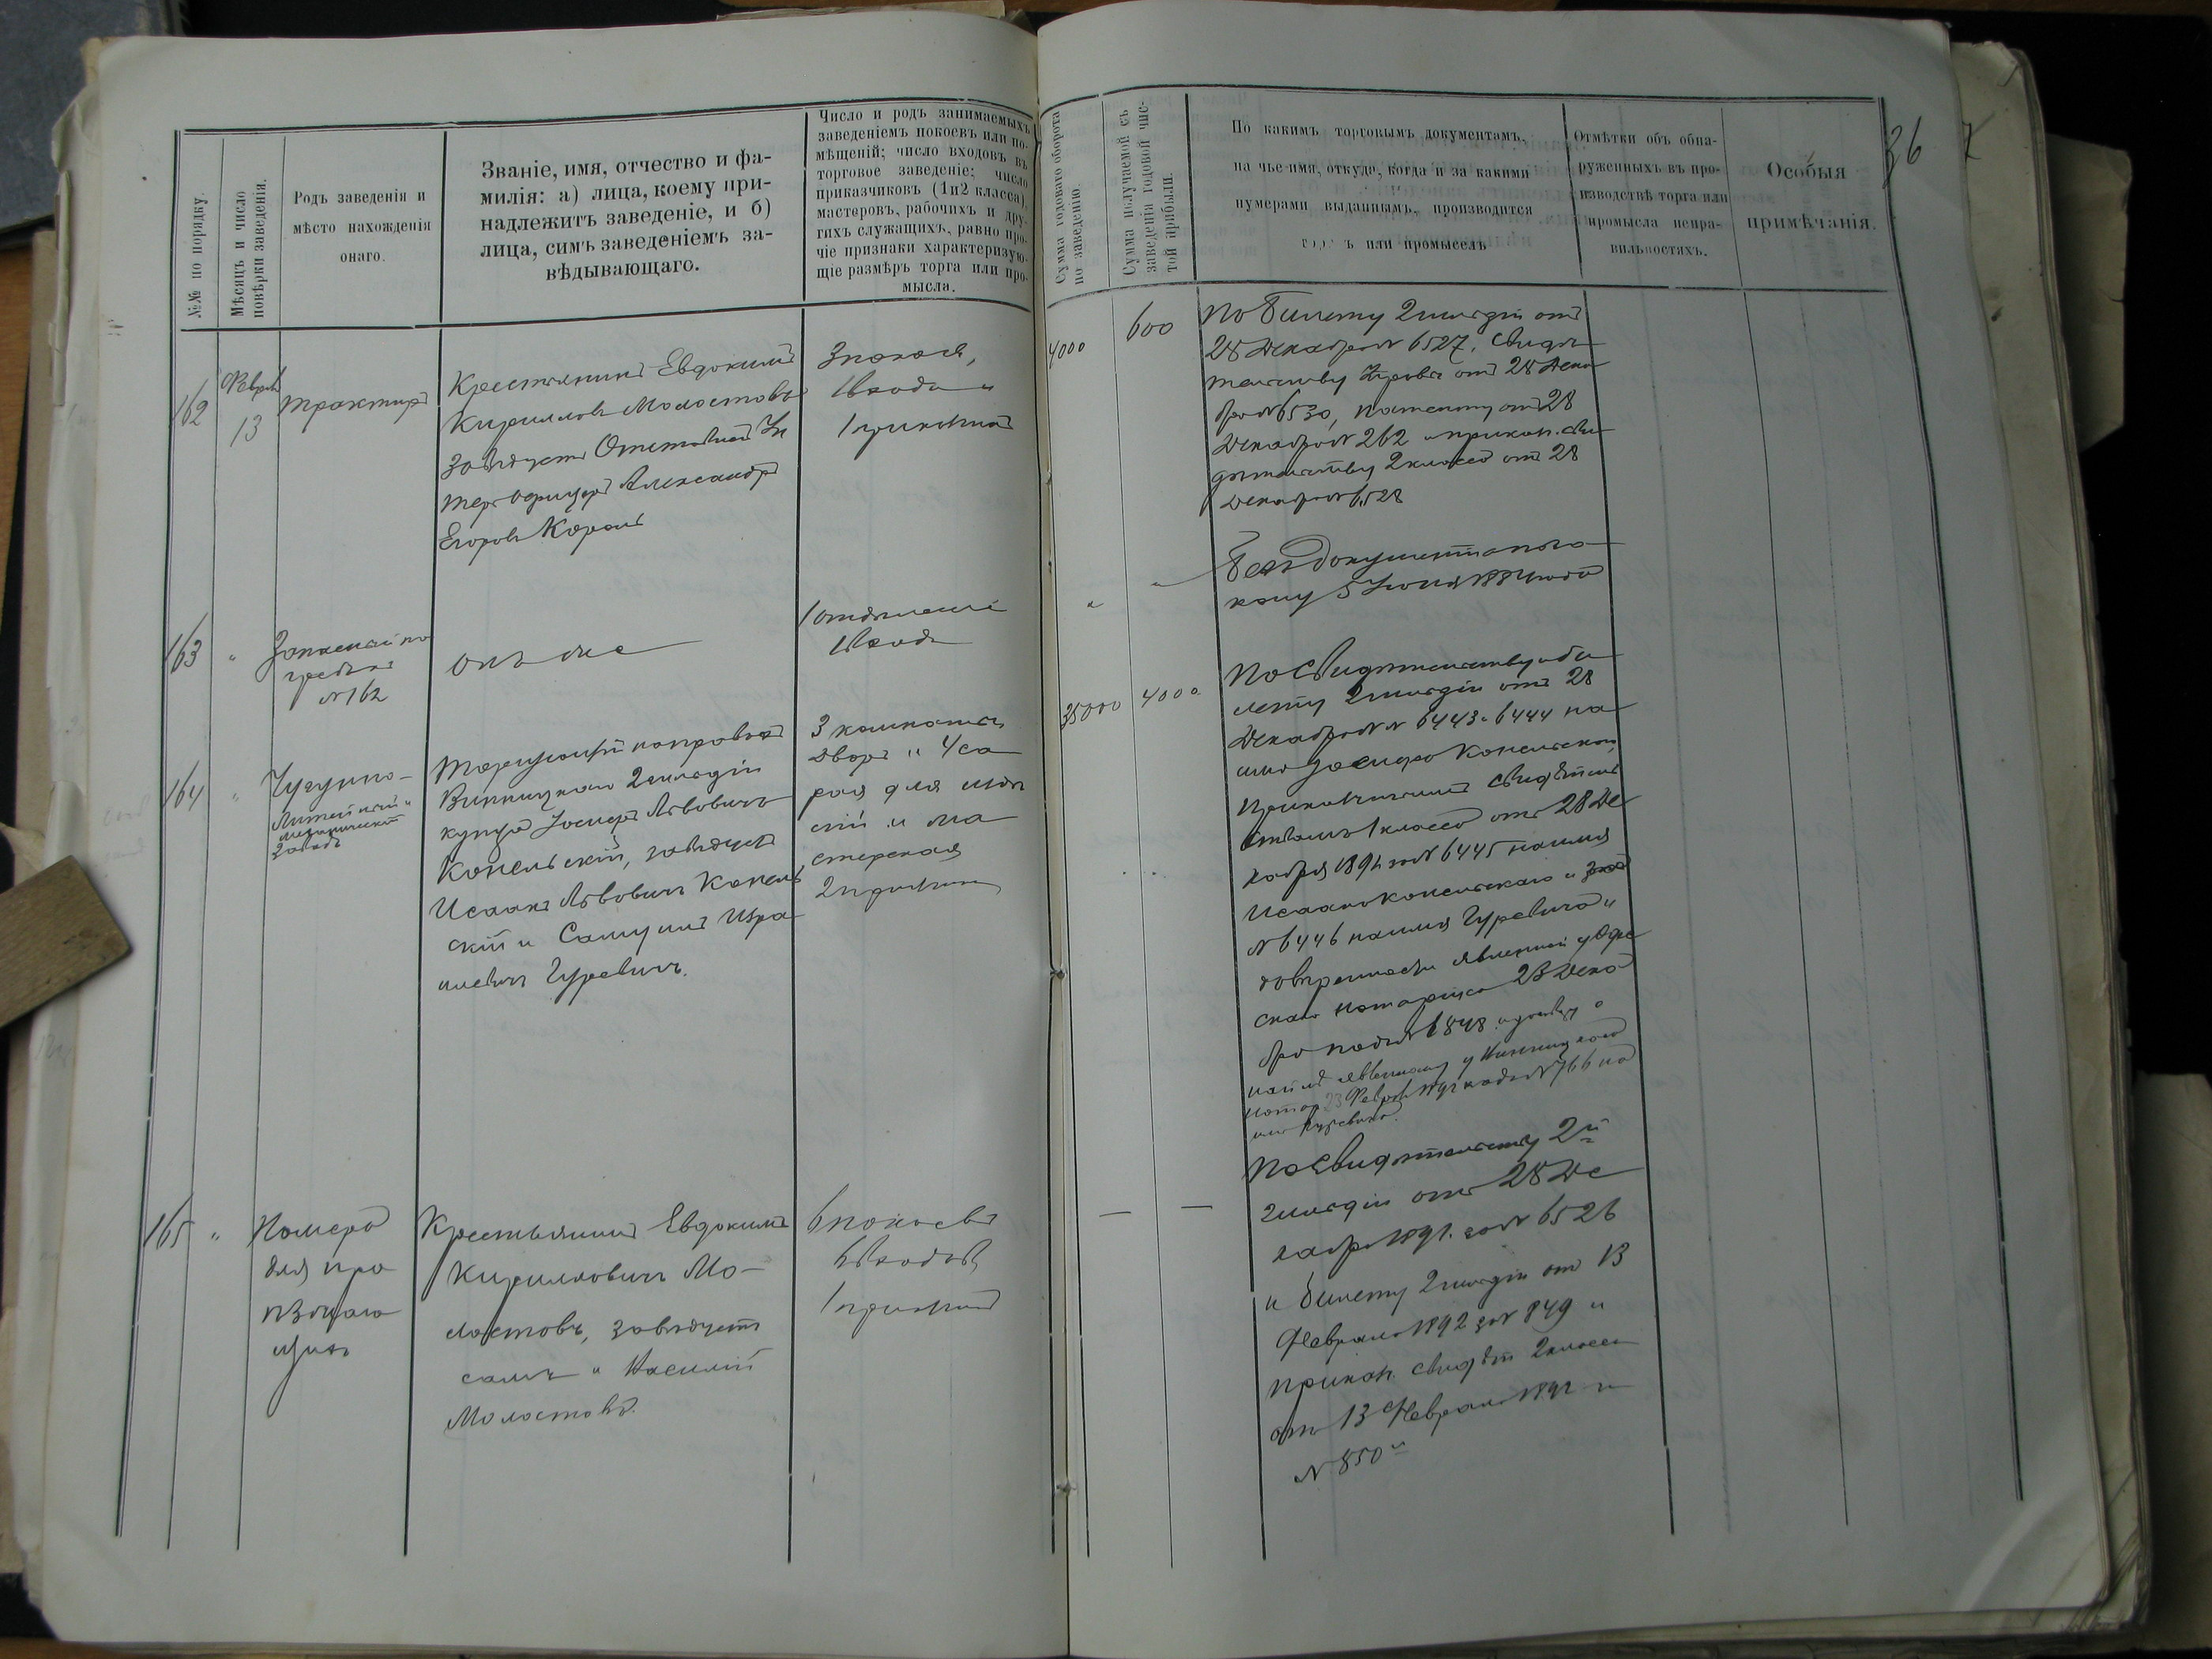 №№ по порядку.
Мѣсяцъ и число
повѣрки заведенія.
Родъ заведенія и
мѣсто нахожденія
онаго.
Званіе, имя, отчество и фа-
милія: а) лица, коему при-
надлежитъ заведеніе, и б)
лица, симъ заведеніемъ за-
вѣдывающаго.
Число и родъ занимаемыхъ
заведеніемъ покоевъ или по-
мѣщеній; число входовъ въ
торговое заведеніе; число
приказчиковъ (1и2 класса),
мастеровъ, рабочихъ и дру-
гихъ служащихъ, равно про-
чіе признаки характеризую-
щіе размѣръ торга или про-
мысла.
Сумма годоваго оборота
по заведенію.
Сумма получаемой съ
заведенія годовой чис-
той прибыли.
По какимъ торговымъ документамъ,
на чье имя, откуда, когда и за какими
нумерами выданнымъ, производится
торгъ или промыселъ
Отмѣтки объ обна-
руженныхъ въ про-
изводствѣ торга или
промысла непра-
вильностяхъ.
Особыя
примѣчанія.
36
162
Феврал
13
трактиръ
Крестьянинъ Евдокимъ
Кирилловъ Молостовъ
завѣдуетъ Отставной Ун
теръ Офицеръ Александръ
Егоровъ Король
3 покоя,
1 входъ и
1 прикащикъ
4000
600
По билету 2 гильдіи отъ
28 Декабря № 6527, свидѣ
тельству Куровъ отъ 28 Дека
бря № 6530, патенту отъ 28
Декабря № 262 и прикащ. сви
дѣтельству 2 класса отъ 28
Декабря № 6528
163
"
Запасный по
гребъ къ
№ 162
онъ же
1 отдѣленіе
1 входъ
"
"
Безъ документа по за
кону 5 Іюня 1884 года
164
"
Чугунно-
Литейный и
механическій
заводъ
Торгующій по правамъ
Винницкаго 2 гильдіи
купца Іосифъ Львовичъ
Копельскій, завѣдуетъ
Исаакъ Львовичъ Копель
скій и Самуилъ Изра
илевичъ Гуревичъ.
3 комнаты
дворъ и 4 са
рая для
и ма
стерская
2 прикащик
35000
4000
По свидѣтельству и би
лету 2 гильдіи отъ 28
Декабря №№ 6443 и 6444 на
имя Іосифа Копельскаго,
Прикащичьимъ свидѣтель
ствамъ 1 класса отъ 28 Де
кабря 1891 за № 6445 на имя
Исаака Копельскаго и
№ 6446 на имя Гуревича и
довѣренности явленной у Одес
скаго нотаріуса 28 Дека
бря подъ № 6848 и договору о
наймѣ явленному у Винницкаго
нотар 23 Февраля 1892 подъ № 766 на
имя Гуревича.
165
"
Номера
для про
ѣзжаю
щихъ
Крестьянинъ Евдокимъ
Кирилловичъ Мо-
лостовъ, завѣдуетъ
самъ и Василій
Молостовъ.
6 покоевъ
6 входовъ
1 прикащикъ
—
—
По свидѣтельству 2й
гильдіи отъ 28 Де
кабря 1891. за № 6526
и билету 2 гильдіи отъ 13
Февраля 1892 за № 849 и
прикащ. свидѣт 2 класса
отъ 13 Февраля 1892 за
№ 850 "